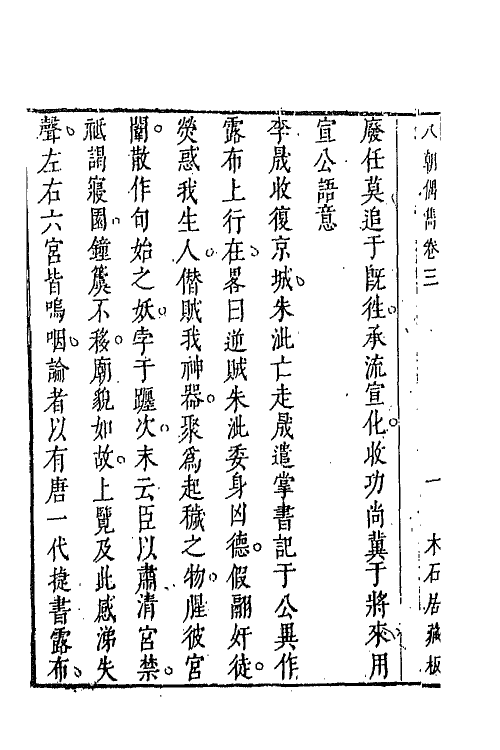 八朝偶雋卷三 一 木石居藏板
廢任莫追于旣徃承流宣化收功尚冀于將來用
宣公語意
李晟收復京城朱泚亡走晟遣掌書記于公異作
露布上行在畧曰逆賊朱泚委身凶德假翮奸徒
熒惑我生人僣賊我神器聚爲起穢之物腥彼宮
闈散作句始之妖孛于躔次末云臣以肅清宮禁
祗謁寢園鐘簴不移廟貌如故上覽及此感涕失
聲左右六宮皆嗚咽論者以有唐一代捷書露布